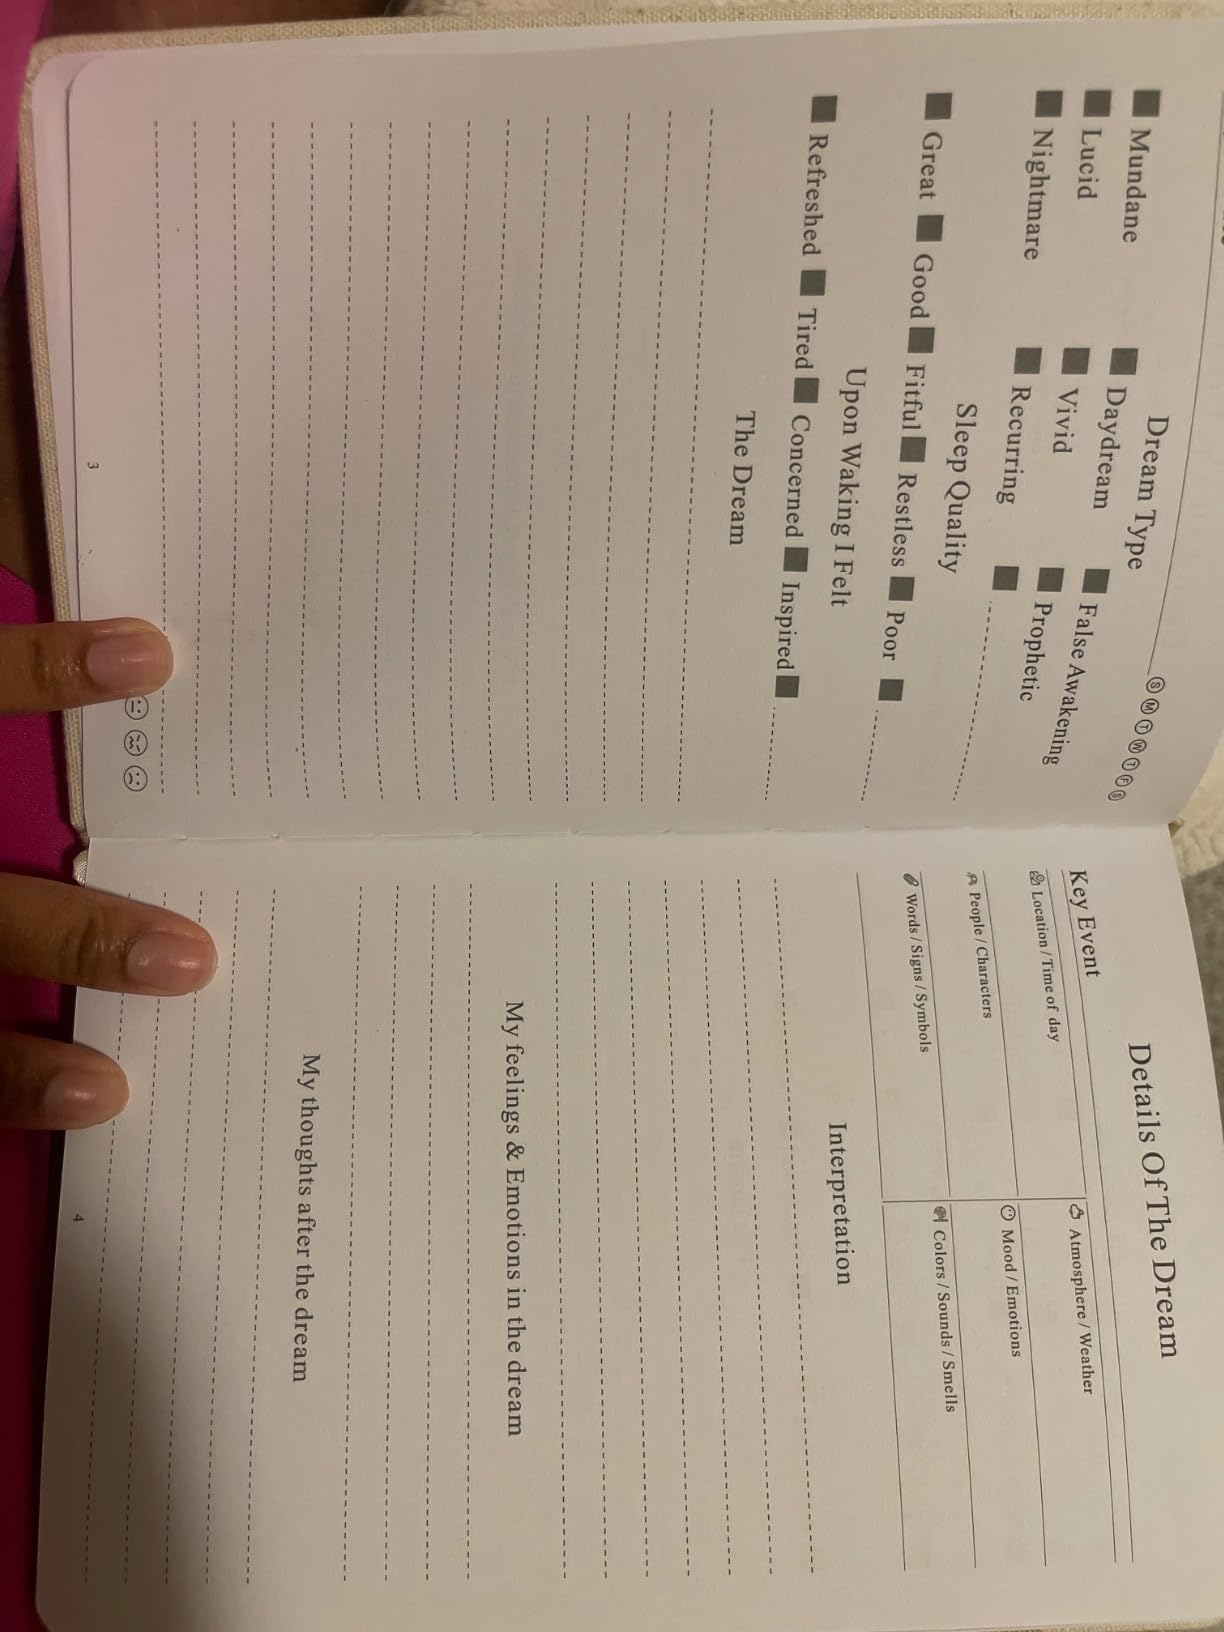 Ⓢ Ⓜ Ⓣ Ⓦ Ⓣ Ⓕ Ⓢ
Dream Type
Mundane Daydream False Awakening
Lucid Vivid Prophetic
Nightmare Recurring
Sleep Quality
Great Good Fitful Restless Poor
Upon Waking I Felt
Refreshed Tired Concerned Inspired
The Dream
3
Details Of The Dream
Key Event
Location / Time of day Atmosphere / Weather
People / Characters Mood / Emotions
Words / Signs / Symbols Colors / Sounds / Smells
Interpretation
My feelings & Emotions in the dream
My thoughts after the dream
4